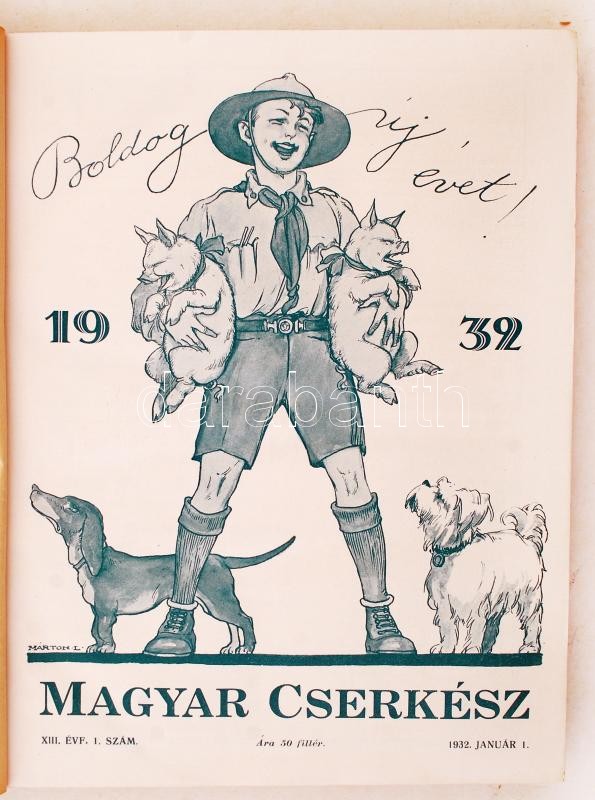 Boldog új évet!
19 32
darabanth
MÁRTON L.
MAGYAR CSERKÉSZ
XIII. ÉVF. 1. SZÁM. Ára 50 fillér. 1932. JANUÁR 1.